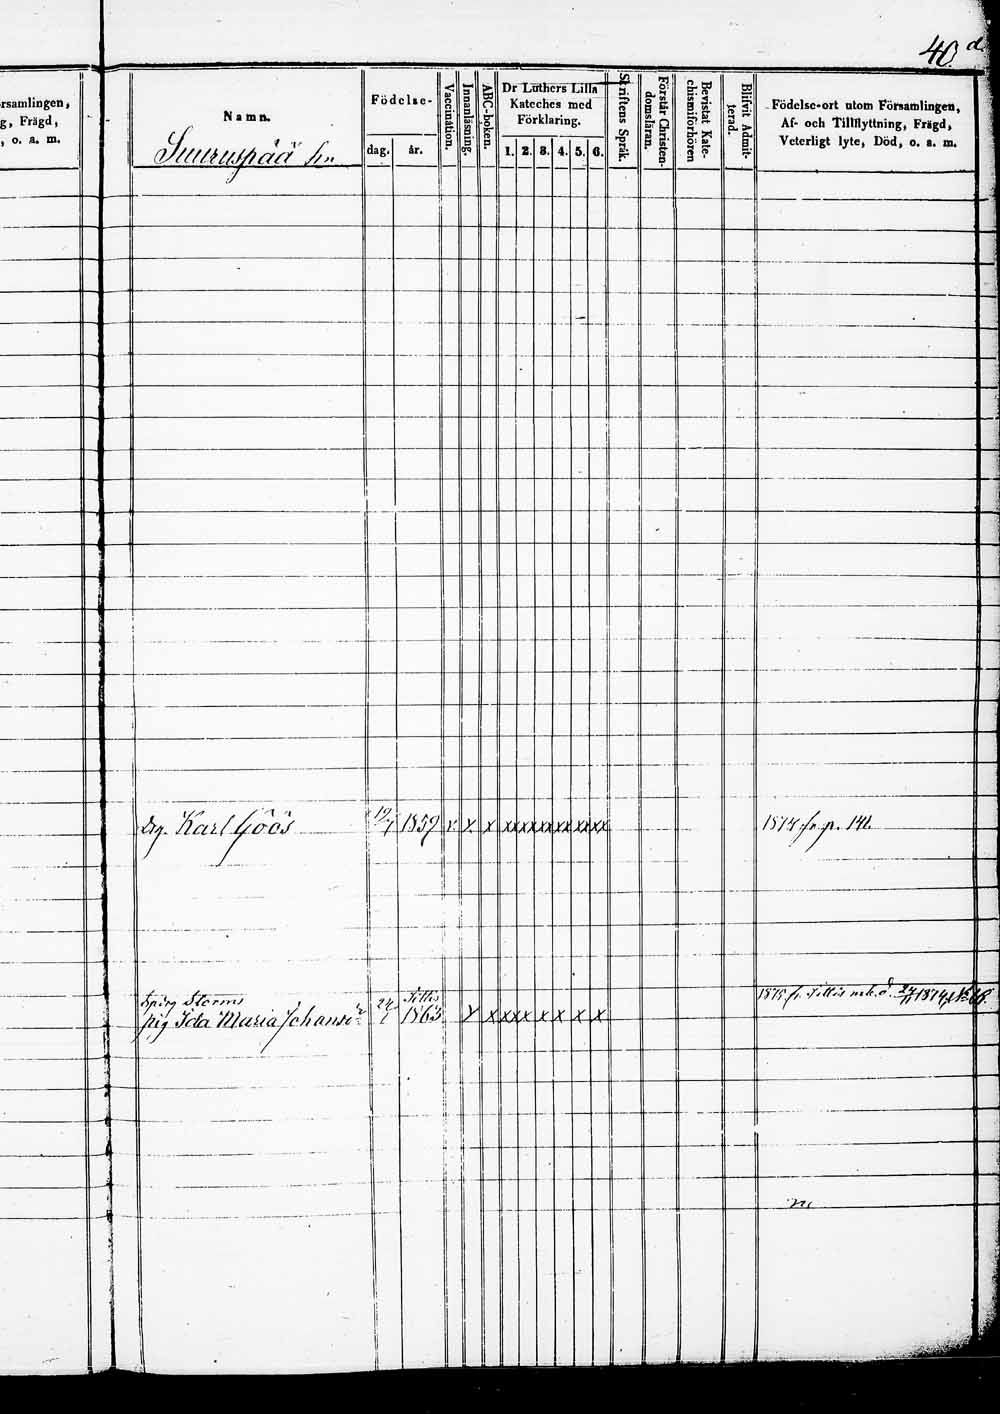 40.d.
örsamlingen,
g, Frägd,
, o. a. m.
Namn.
Suuruspää hn
Födelse-
dag.
år.
Vaccination.
Innanläsning.
ABC-boken.
Dr Luthers Lilla
Kateches med
Förklaring.
1. 2. 3. 4. 5. 6.
Skriftens Språk.
Förstår Christen-
domsläran.
Bevistat Kate-
chismiförhören
Blifvit Admit-
terad.
Födelse-ort utom Församlingen,
Af- och Tillflyttning, Frägd,
Veterligt lyte, Död, o. a. m.
drg. Karl Göös 19/7 1859 v. x. x xx xx xx xx xx xx 1874 fr. p. 141.
Storms Sillis 1875 fr. Sillis
pig Ida Maria Johans 24/1 1863 x x xx x x x x x